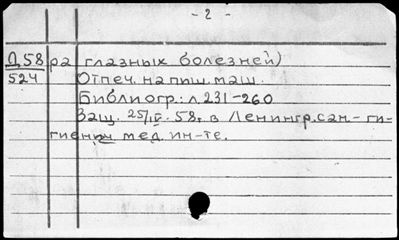 - 2 -
Д58 ра глазных болезней)
524 Отпеч. на пиш. маш.
Библиогр.: л. 231-260
Защ. 25/IV. 58г. в Ленингр. сан.-ги-
гиенич. мед. ин-те.